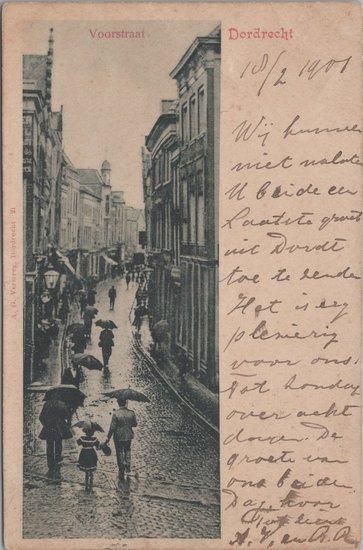 Voorstraat
Dordrecht
18/2 1901
Wij kunnen
niet nalaten
U beide een
Laatste groet
uit Dordt
toe te zenden
Het is erg
plezierig
voor ons.
Tot Zondag
over acht
dagen. De
groeten van
ons beiden
Dag, hoor
A. V. en A. A.
A. G. Verveer, Dordrecht 21